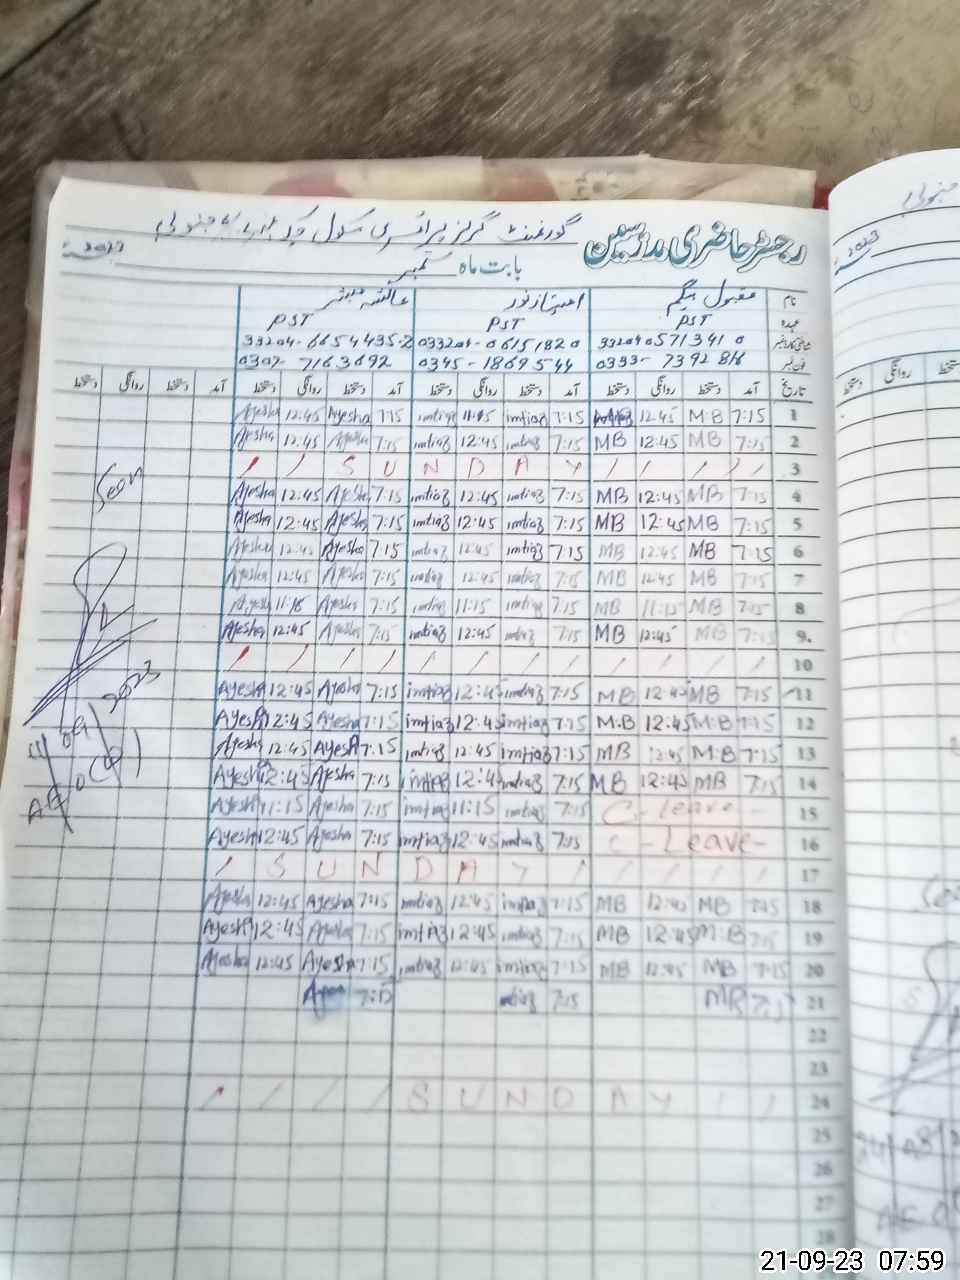 رجسٹر حاضری مدرسین گورنمنٹ گرلز پرائمری سکول
بابت ماہ ستمبر 2023
نام مقبول بیگم امتیاز نور عائشہ مبشر
عہدہ PST PST PST
تاریخ آمد دستخط روانگی دستخط آمد دستخط روانگی دستخط آمد دستخط روانگی دستخط آمد دستخط روانگی دستخط
Ayesha 12:45 Ayesha 7:15 imtiaz imtiaz 7:15 12:45 M.B 7:15 1
Ayesha 12:45 Ayesha 7:15 imtiaz 12:45 imtiaz 7:15 MB 12:45 MB 7:15 2
/ / S U N D A Y / / / / 3
Ayesha 12:45 Ayesha 7:15 imtiaz 12:45 imtiaz 7:15 MB 12:45 MB 7:15 4
Ayesha 12:45 Ayesha 7:15 imtiaz 12:45 imtiaz 7:15 MB 12:45 MB 7:15 5
Ayesha 12:45 Ayesha 7:15 imtiaz 12:45 imtiaz 7:15 MB 12:45 MB 7:15 6
Ayesha 12:45 Ayesha 7:15 imtiaz 12:45 imtiaz 7:15 MB 12:45 MB 7:15 7
Ayesha 11:15 Ayesha 7:15 imtiaz 11:15 imtiaz 7:15 MB 11:15 MB 7:15 8
Ayesha 12:45 Ayesha 7:15 imtiaz 12:45 imtiaz 7:15 MB 12:45 MB 7:15 9.
/ / / / / / / / / / / / 10
Ayesha 12:45 Ayesha 7:15 imtiaz 12:45 imtiaz 7:15 MB 12:45 MB 7:15 11
Ayesha 12:45 Ayesha 7:15 imtiaz 12:45 imtiaz 7:15 M.B 12:45 M.B 7:15 12
Ayesha 12:45 Ayesha 7:15 imtiaz 12:45 imtiaz 7:15 MB 12:45 M.B 7:15 13
Ayesha 12:45 Ayesha 7:15 imtiaz 12:45 imtiaz 7:15 MB 12:45 MB 7:15 14
Ayesha 11:15 Ayesha 7:15 imtiaz 11:15 imtiaz 7:15 C - Leave - 15
Ayesha 12:45 Ayesha 7:15 imtiaz 12:45 imtiaz 7:15 C - Leave - 16
/ S U N D A Y / / / / / 17
Ayesha 12:45 Ayesha 7:15 imtiaz 12:45 imtiaz 7:15 MB 12:45 MB 7:15 18
Ayesha 12:45 Ayesha 7:15 imtiaz 12:45 imtiaz 7:15 MB 12:45 M.B 7:15 19
Ayesha 12:45 Ayesha 7:15 imtiaz 12:45 imtiaz 7:15 MB 12:45 MB 7:15 20
7:15 imtiaz 7:15 MB 7:15 21
22
23
/ / / / S U N D A Y / / 24
25
26
27
28
Seen
2023
21-09-23 07:59